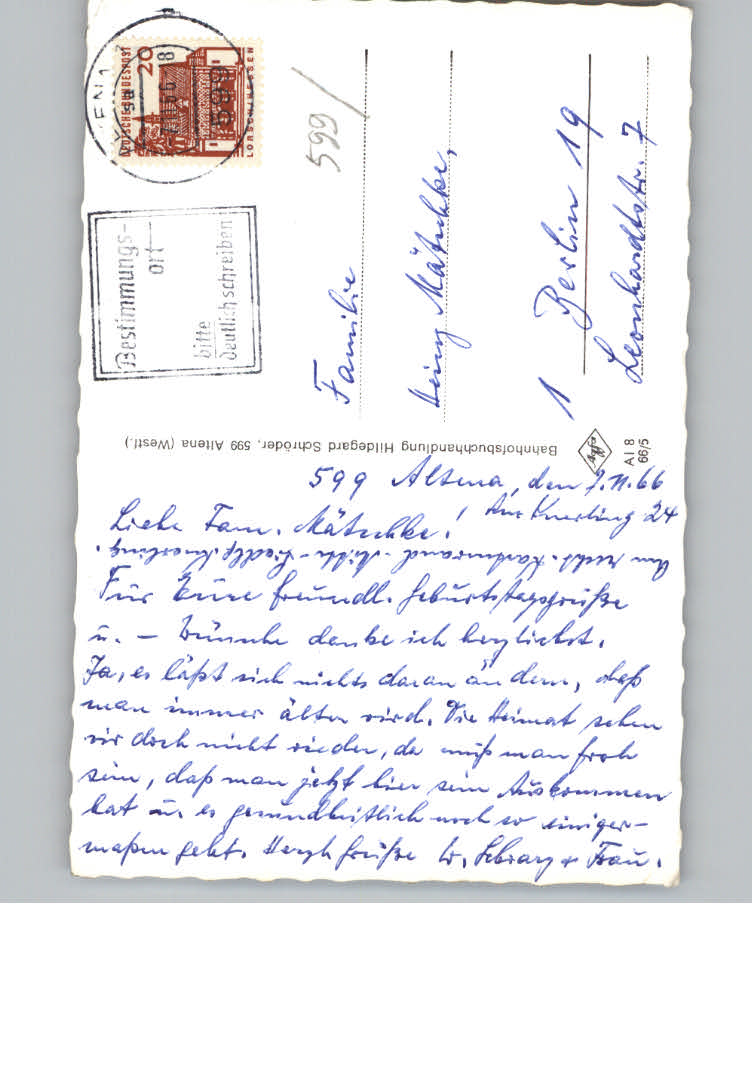 DEUTSCHE BUNDESPOST
20
LORSCH/HESSEN
Bestimmungs-
ort
bitte
deutlich schreiben
599
Familie
Heinz Mätschke,
1 Berlin 19
Leonhardtstr. 7
Bahnhofsbuchhandlung Hildegard Schröder, 599 Altena (Westf.)
Agfa
AI 8
66/5
599 Altena, den 7.11.66
Am Knerling 24
Liebe Fam. Mätschke!
Am recht. Kartenrand - Mitte - Siedlg. Knerling.
Für Eure freundl. Geburtstagsgrüße
u. – Wünsche danke ich herzlichst.
Ja, es läßt sich nichts daran ändern, daß
man immer älter wird. Die Heimat sehen
wir doch nicht wieder, da muß man froh
sein, daß man jetzt hier sein Auskommen
hat u. es gesundheitlich noch so einiger-
maßen geht. Herzl. Grüße W. Schwarz + Frau.